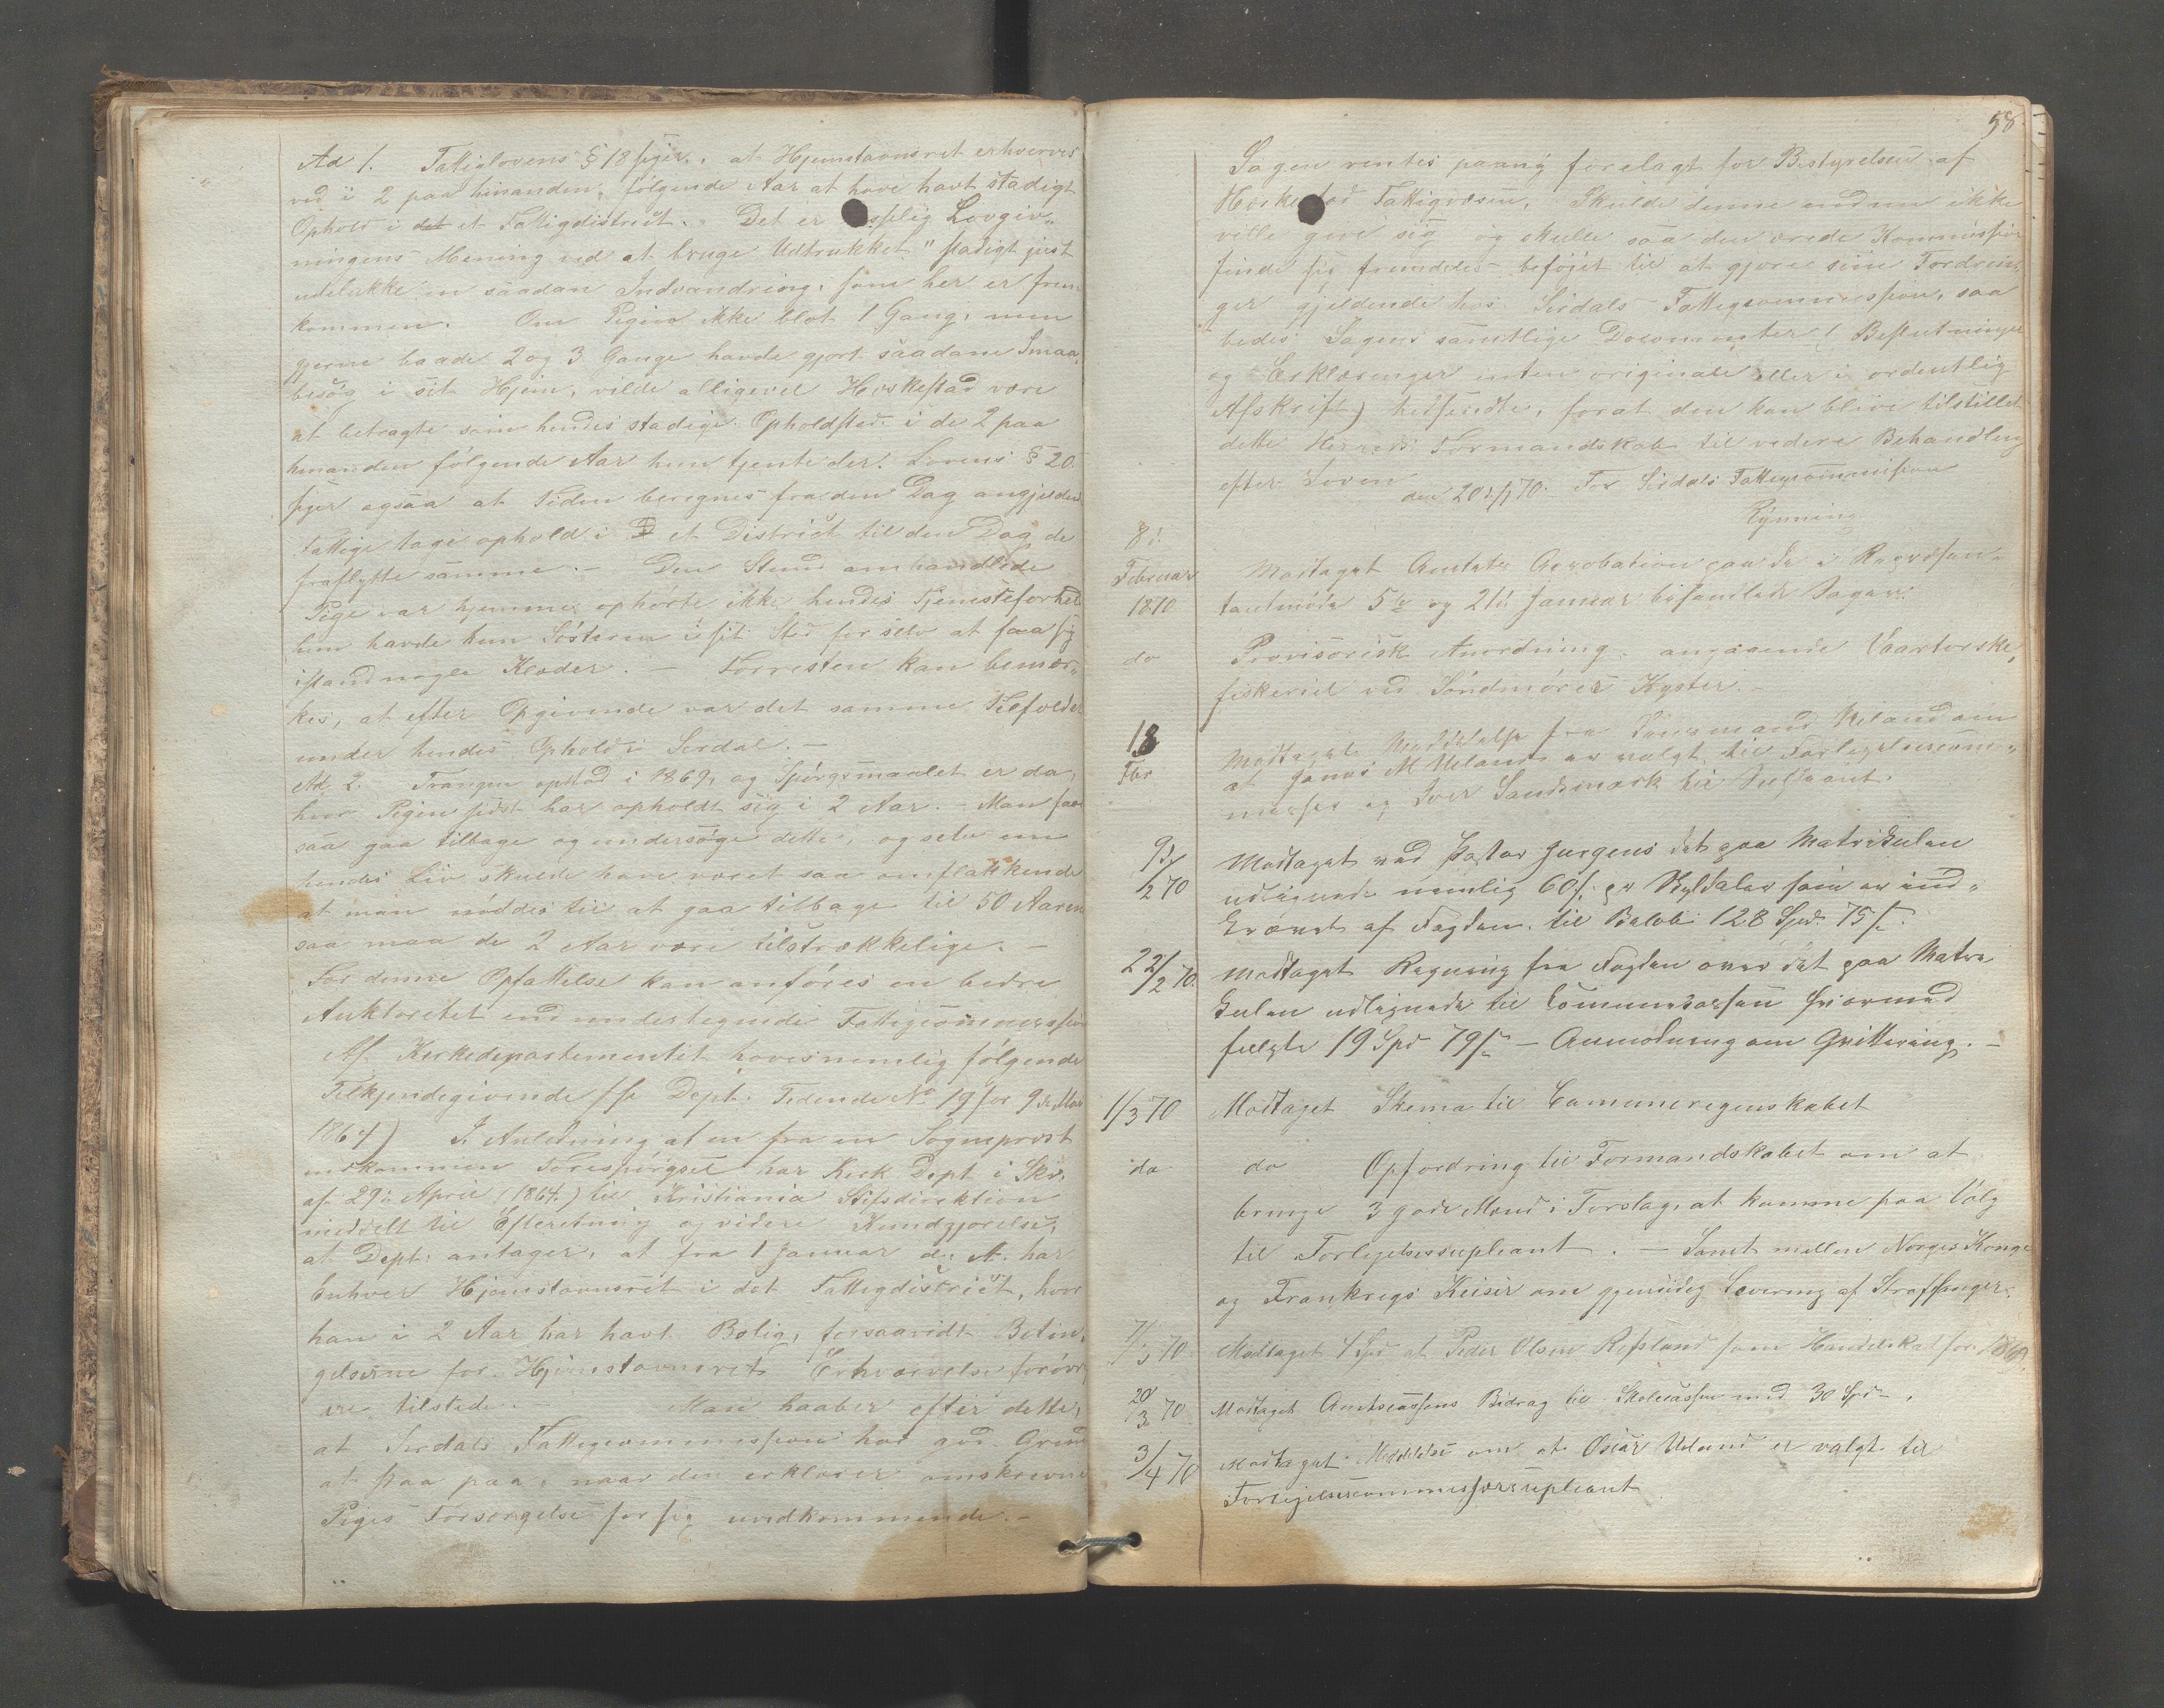 Ad 1. Fattiglovens § 18 siger, at Hjemstavnsret erhverves
ved i 2 paa hinanden følgende Aar at have havt stadigt
Ophold i det et Fattigdistrict. Det er Lovgiv„
ningens Mening ved at bruge Udtrukket „stadigt just
udelukke en saadan Indvandring, som her er frem
kommen. Om Pigen ikke blot 1 Gang, men
gjerne baade 2 og 3 Gange havde gjort saadane Smaa„
besøg i sit Hjem, vilde alligevel Heskestad være
at betragte som hendes stadige Opholdsted i de 2 paa
hinanden følgende Aar hun tjente der. Lovens § 20.
siger ogsaa at Tiden beregnes fra den Dag angjeldende
Fattige tage ophold i D et District til den Dag de
fraflytte samme. – Den Stund omhandlede
Pige var hjemme ophørte ikke hendes Tjenesteforhold
hun havde kun Søsteren i sit Sted for selv at faa sig
istand nogle Klæder. – Forresten kan bemær„
kes, at efter Opgivende var det samme Tilfælde
under hendes Ophold i Serdal. –
Ad 2. Trangen opstod i 1869, og Spørgsmaalet er da,
hvor Pigen sidst har opholdt sig i 2 Aar. – Man faar
saa gaa tilbage og undersøge dette, og selv om
hendes Liv skulde have været saa omflakkende
at man nøddes til at gaa tilbage til 50 Aarene
saa maa de 2 Aar være tilstrækkelige. –
For denne Opfattelse kan anføres en bedre
Auktoritet end undertegnede Fattigcommission
Af Kirkedepartementet haves nemlig følgende
Tilkjendegivende (se Dept. Tidende No 19 for 9de Mai
1864) I Anledning af en fra en Sogneprest
indkommen Forespørgsel har Kirk. Dept. i Skr.
af 29de April (1864) til Kristiania Stifsdirektion
meddelt til Efteretning og videre Kundgjørelse,
at Dept. antager, at fra 1 Januar d. A. har
Enhver Hjemstavnsret i det Fattigdistrict, hvor
han i 2 Aar har havt Bolig, forsaavidt Betin„
gelserne for Hjemstavnsrets Erhvervelse forøvr
ere tilstede. – Man haaber efter dette,
at Sirdals Fattigcommission har god Grund
at staa paa, naar den erklærer omskrevne
Piges Forsørgelse for sig uvedkommende. –
58
Sagen ventes paany forelagt for Bestyrelsen af
Fattigvæsen. Skulde denne endnu ikke
ville give sig og skulle saa den ærede Kommission
finde sig fremdeles beføjet til at gjøre sine Fordrin„
ger gjeldende hos Sirdals Fattigcommission, saa
bedes Sagens samtlige Documenter (Beslutninger
og Erklæringer enten originale eller i ordentlig
Afskrift) hidsendte, forat den kan blive tilstillet
dette Herreds Formandskab til videre Behandling
efter Loven
den 20/1 70. For Sirdals Fattigcommission
Rynning
8de
Februar
1870
Modtaget Amtets Approbation paa de i Repræsen„
tantmøde 5te og 21de Januar behandlede Sager.
do
Provisorisk Anordning angaaende Vaartorske„
fiskeriet ved Søndmøres Kyster. –
18
Fbr
Modtaget Meddelelse fra Lensmand Ueland om
at Jonas M Ueland er valgt til Forligelsescom„
missær og Iver Sandsmark til Supleant.
9/2 70
Modtaget ved Pastor Jurgens det paa Matrikulen
udlignede nemlig 60 s. pr Skyldaler som er ind„
krævet af Fogden til Beløb 128 Spd. 75 s.
22/2 70.
Modtaget Regning fra Fogden over det paa Matri
kulen udlignede til Communekassen hvormed
fulgte 19 Spd 79 s – Anmodning om Qvittering. –
1/3 70
Modtaget Skema til Communeregnskabet
do
do Opfordring til Formandskabet om at
bringe 3 gode Mænd i Forslag, at komme paa Valg
til Forligelsessupleant. – Samt mellem Norges Konge
og Frankrigs Keiser om gjensidig Levering af Straffanger.
7/3 70
Modtaget 4 Spd af Peder Olsen Refsland som Handelskat for 1869.
20/3 70
Modtaget Amtscassens Bidrag til Skolecassen med 30 Spd.
3/4 70
Modtaget Meddelelse om at Oscar Ueland er valgt til
Forligelsescommissærsupleant